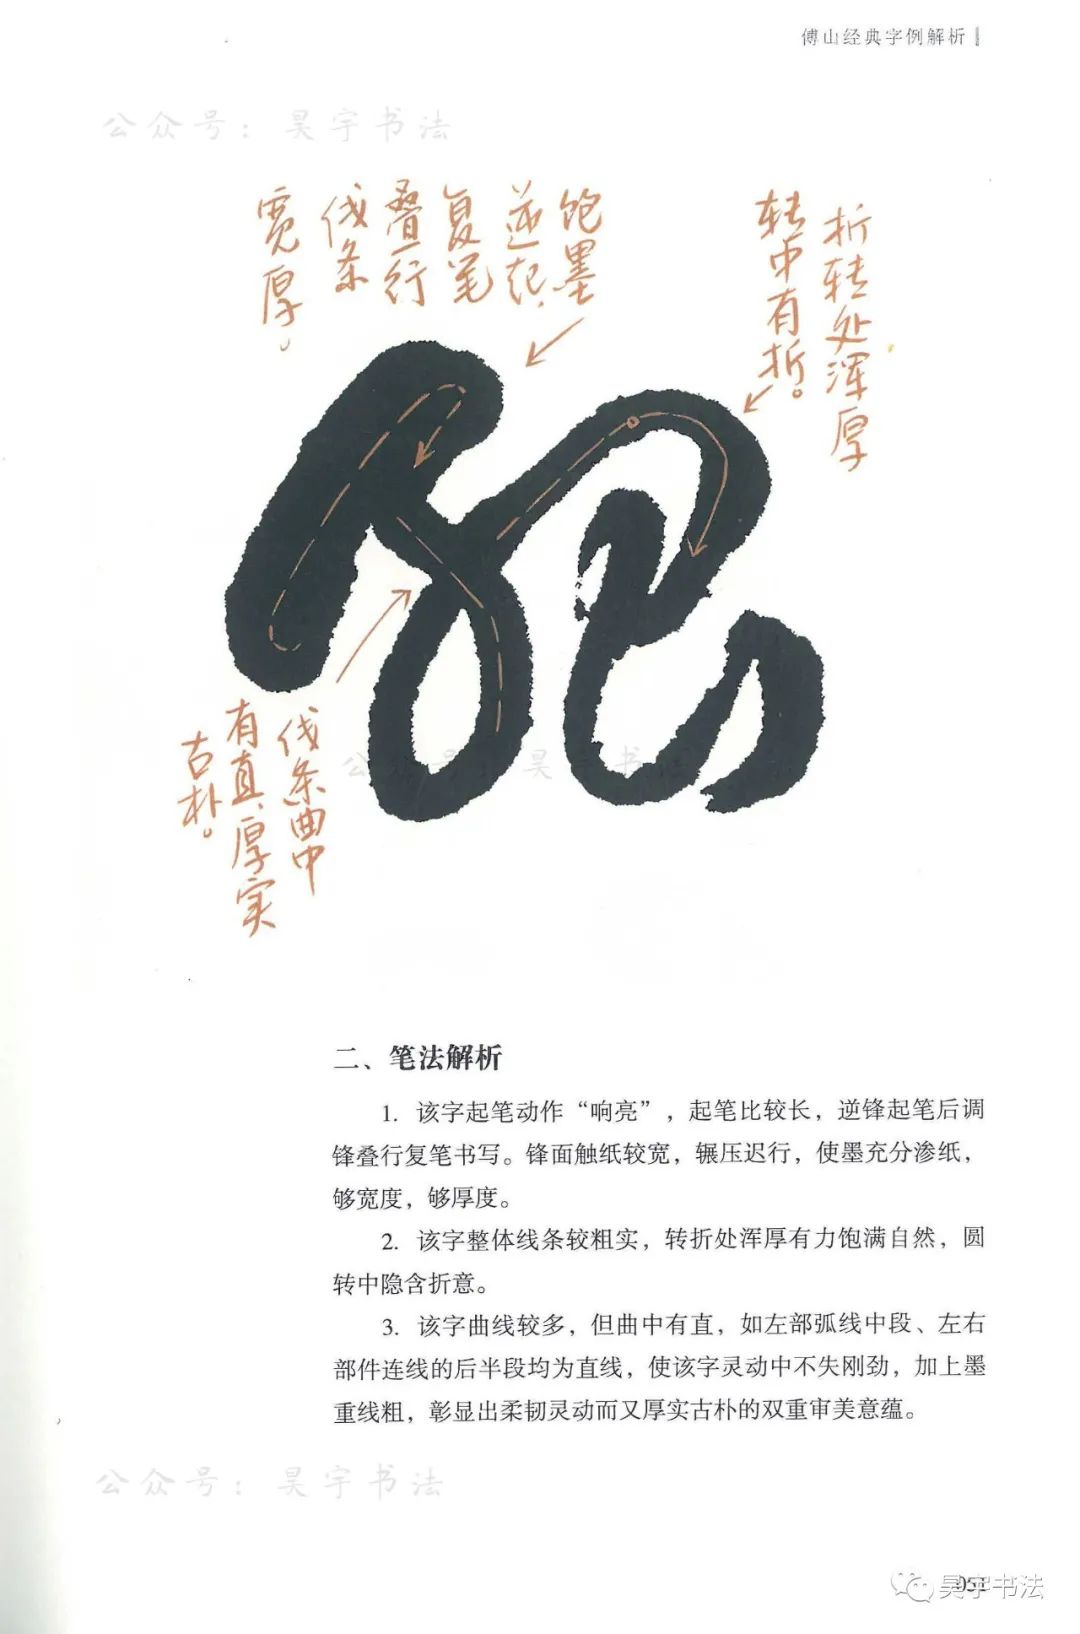 傅山经典字例解析
公众号：昊宇书法
饱墨
逆起，
复笔
叠行
线条
宽厚。
折转处浑厚
转中有折。
线条曲中
有直，厚实
古朴。
公众号：昊宇书法
二、笔法解析
1. 该字起笔动作“响亮”，起笔比较长，逆锋起笔后调
锋叠行复笔书写。锋面触纸较宽，辗压迟行，使墨充分渗纸，
够宽度，够厚度。
2. 该字整体线条较粗实，转折处浑厚有力饱满自然，圆
转中隐含折意。
3. 该字曲线较多，但曲中有直，如左部弧线中段、左右
部件连线的后半段均为直线，使该字灵动中不失刚劲，加上墨
重线粗，彰显出柔韧灵动而又厚实古朴的双重审美意蕴。
公众号：昊宇书法
051
昊宇书法